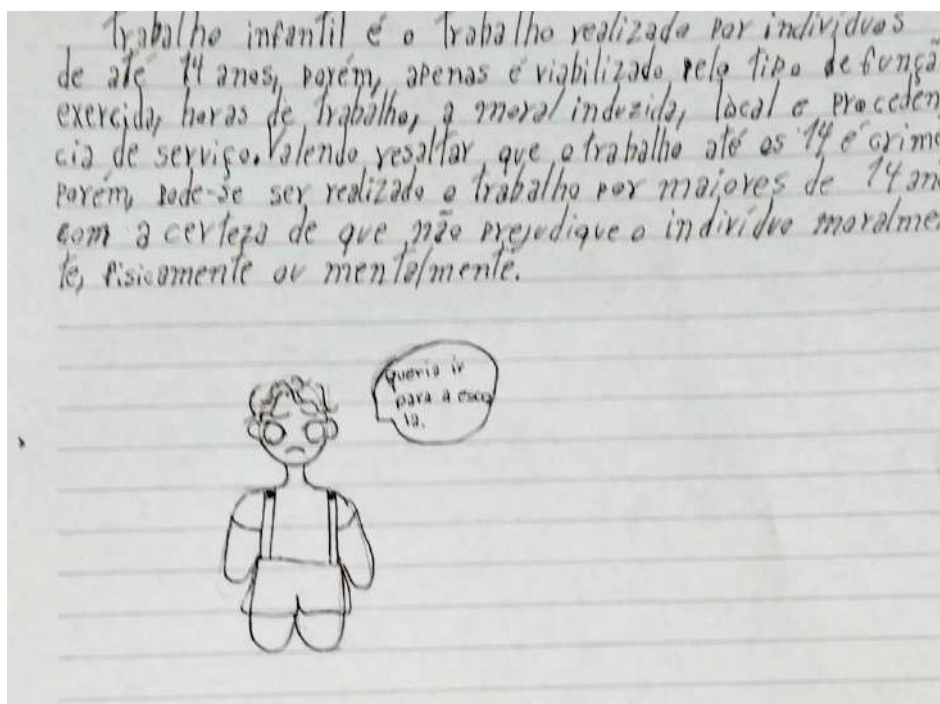 Trabalho infantil é o trabalho realizado por indivíduos
de até 14 anos, porém, apenas é viabilizado pelo tipo de funçã
exercida, horas de trabalho, a moral induzida, local e proceden
cia de serviço. Valendo resaltar que o trabalho até os 14 é crime
porém, pode-se ser realizado o trabalho por maiores de 14 ano
com a certeza de que não prejudique o indivíduo moralmen
te, fisicamente ou mentalmente.
queria ir
para a esco
la.